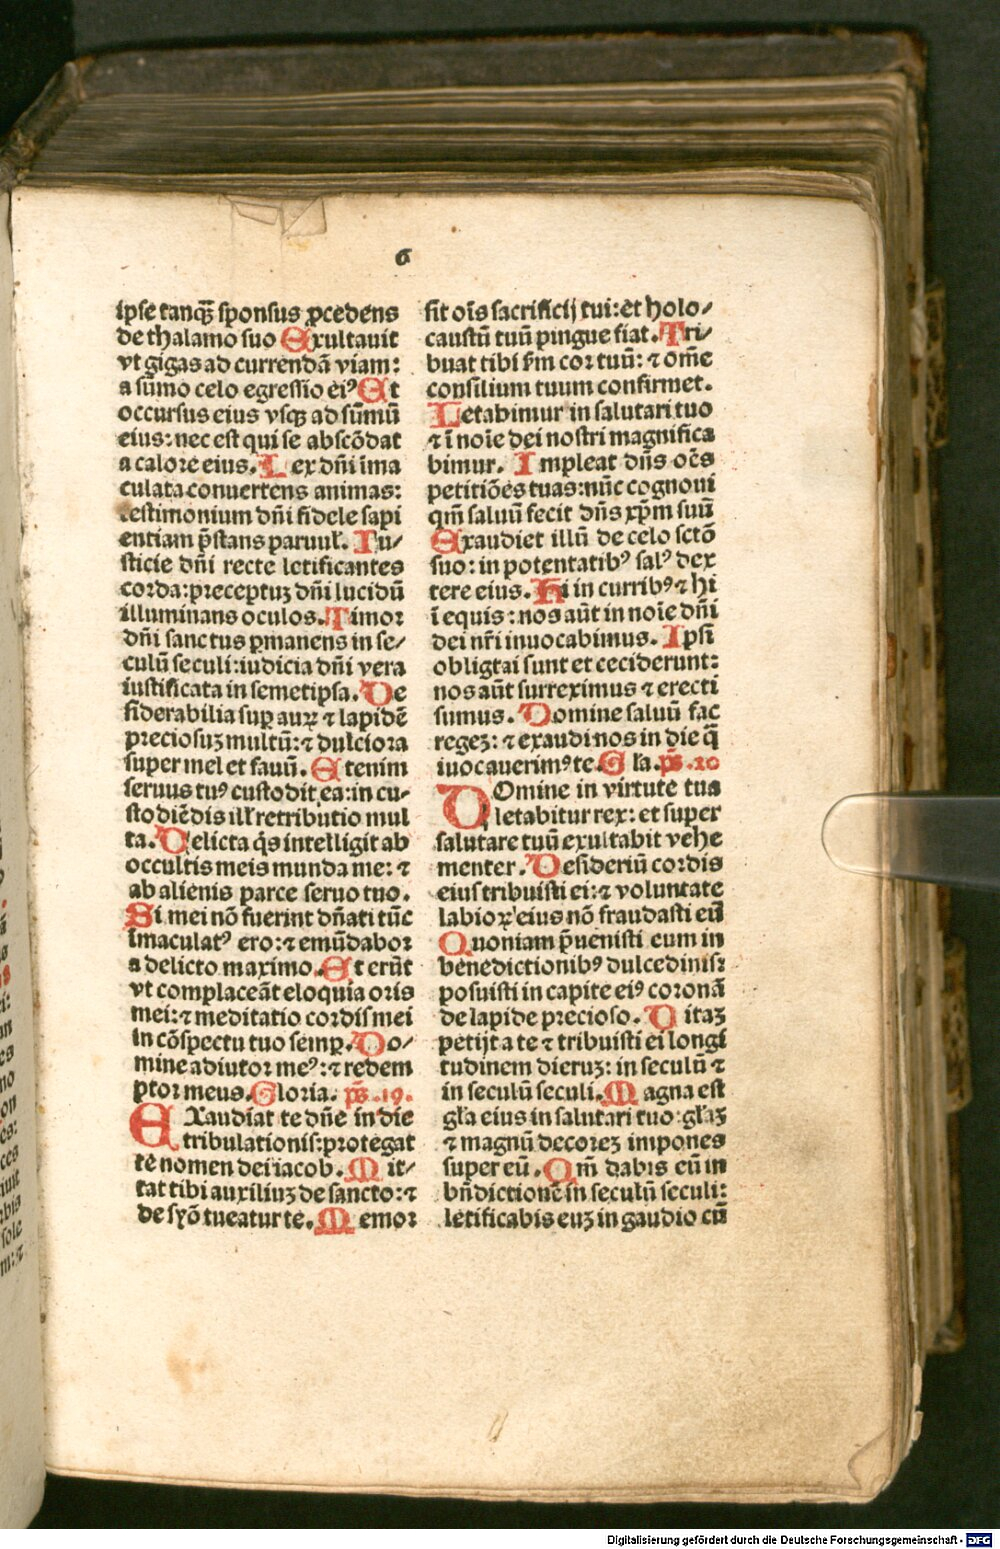 6
ipse tanq̃ꝫ sponsus ꝓcedens
de thalamo suo Exultauit
vt gigas ad currendã viam:
a sũmo celo egressio ei⁹ Et
occursus eius vsqꝫ ad sũmũ
eius: nec est qui se abscõdat
a calore eius. Lex dñi ĩma
culata conuertens animas:
testimonium dñi fidele sapi
entiam p̃stans paruul̃. Iu⸗
sticie dñi recte letificantes
corda: preceptuꝫ dñi lucidũ
illuminans oculos. Timor
dñi sanctus ꝑmanens in se⸗
culũ seculi: iudicia dñi vera
iustificata in semetipsa. De
siderabilia suꝑ auꝝ ⁊ lapidẽ
preciosuꝫ multũ: ⁊ dulciora
super mel et fauũ. Etenim
seruus tu⁹ custodit ea: in cu⸗
stodiẽdis ill̃ retributio mul
ta. Delicta q̃s intelligit ab
occultis meis munda me: ⁊
ab alienis parce seruo tuo.
Si mei nõ fuerint dñati tũc
ĩmaculat⁹ ero: ⁊ emũdabor
a delicto maximo. Et erũt
vt complaceãt eloquia oris
mei: ⁊ meditatio cordis mei
in cõspectu tuo semꝑ. Do⸗
mine adiutor me⁹: ⁊ redem
ptor meus. Gloria. ps̃ .19.
EXaudiat te dñe in die
tribulationis: protegat
te nomen dei iacob. Mit⸗
tat tibi auxiliuꝫ de sancto: ⁊
de syõ tueatur te. Memor
sit oĩs sacrificij tui: et holo⸗
caustũ tuũ pingue fiat. Tri⸗
buat tibi ẜm cor tuũ: ⁊ om̃e
consilium tuum confirmet.
Letabimur in salutari tuo
⁊ ĩ noĩe dei nostri magnifica
bimur. Impleat dñs oẽs
petitiões tuas: nũc cognoui
qm̃ saluũ fecit dñs xp̃m suũ
Exaudiet illũ de celo sctõ
suo: in potentatib⁹ sal⁹ dex
tere eius. Hi in currib⁹ ⁊ hi
ĩ equis: nos aũt in noĩe dñi
dei nr̃i inuocabimus. Ipsi
obligtai sunt et ceciderunt:
nos aũt surreximus ⁊ erecti
sumus. Domine saluũ fac
regeꝫ: ⁊ exaudi nos in die q̃
iuocauerim⁹ te. Gl̃a. ps̃ .20
DOmine in virtute tua
letabitur rex: et super
salutare tuũ exultabit vehe
menter. Desideriũ cordis
eius tribuisti ei: ⁊ voluntate
labioꝝ eius nõ fraudasti eũ
Quoniam p̃uenisti eum in
benedictionib⁹ dulcedinis:
posuisti in capite ei⁹ coronã
de lapide precioso. Vitaꝫ
petijt a te ⁊ tribuisti ei longi
tudinem dieruꝫ: in seculũ ⁊
in seculũ seculi. Magna est
gl̃a eius in salutari tuo: gl̃aꝫ
⁊ magnũ decoreꝫ impones
super eũ. Qm̃ dabis eũ in
bñdictionẽ in seculũ seculi:
letificabis euꝫ in gaudio cũ
Digitalisierung gefördert durch die Deutsche Forschungsgemeinschaft - DFG